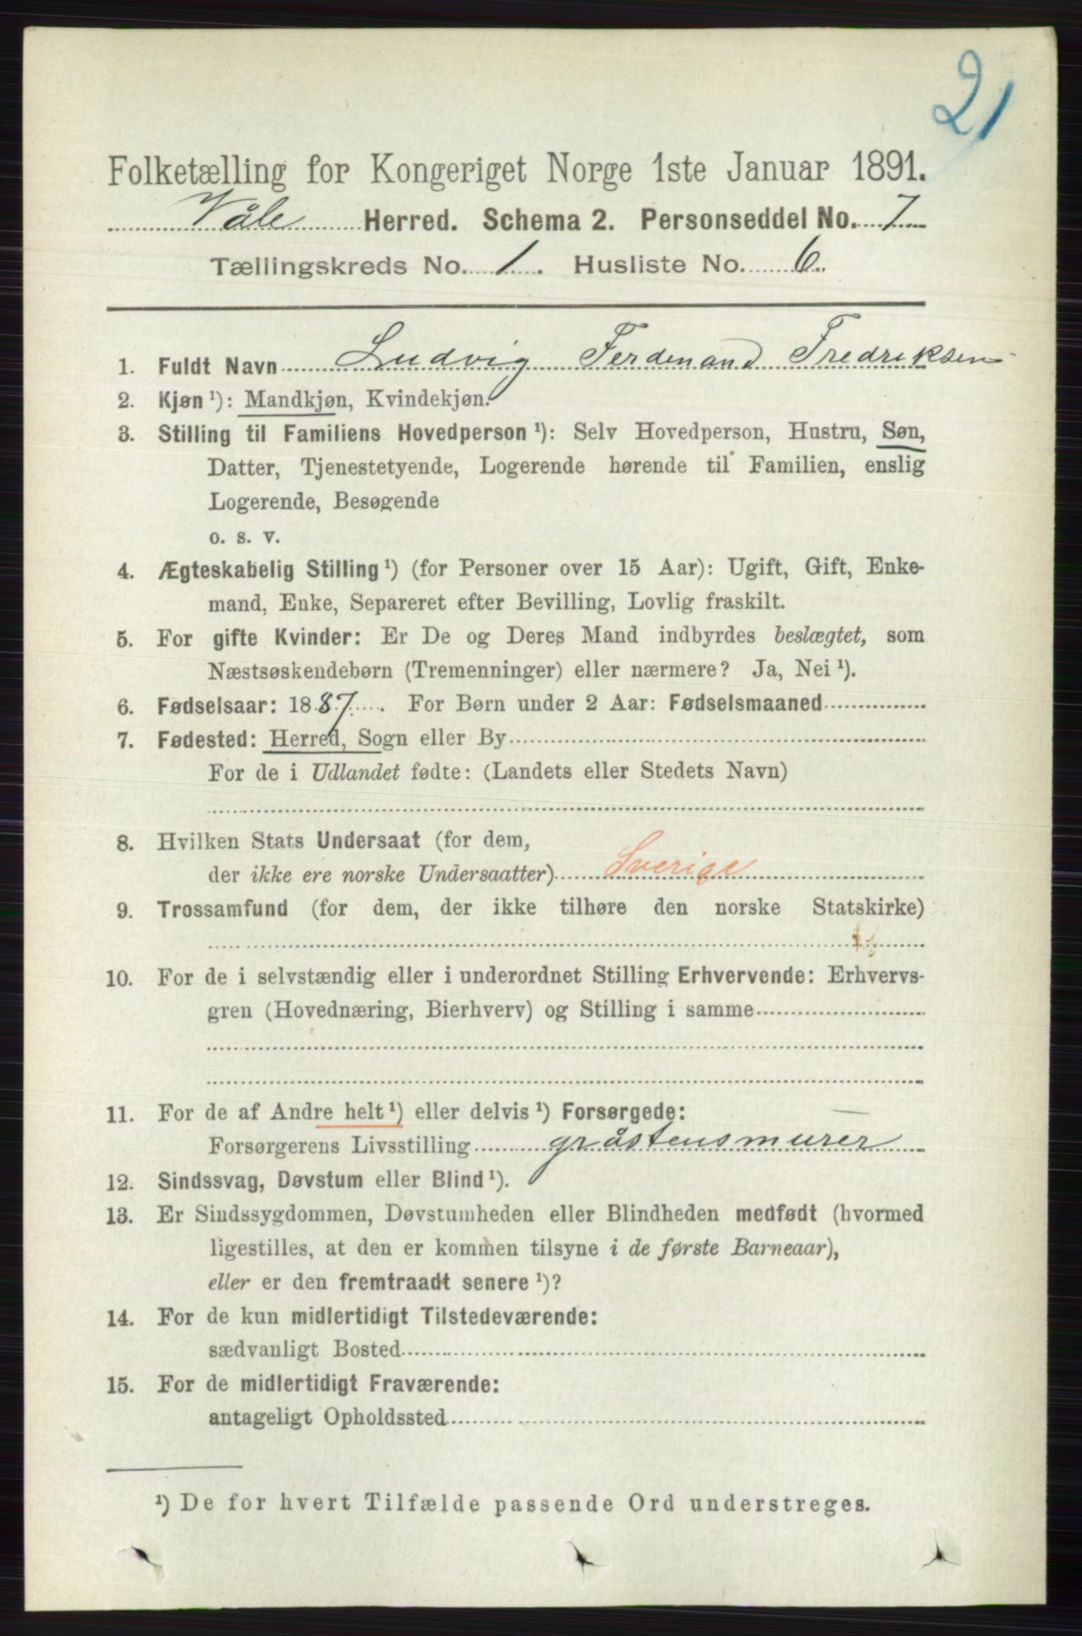 21
Folketælling for Kongeriget Norge 1ste Januar 1891.
Våle Herred. Schema 2. Personseddel No. 7
Tællingskreds No. 1. Husliste No. 6.
1. Fuldt Navn Ludvig Ferdinand Fredriksen
2. Kjøn ¹): Mandkjøn, Kvindekjøn.
3. Stilling til Familiens Hovedperson ¹): Selv Hovedperson, Hustru, Søn,
Datter, Tjenestetyende, Logerende hørende til Familien, enslig
Logerende, Besøgende
o. s. v.
4. Ægteskabelig Stilling ¹) (for Personer over 15 Aar): Ugift, Gift, Enke-
mand, Enke, Separeret efter Bevilling, Lovlig fraskilt.
5. For gifte Kvinder: Er De og Deres Mand indbyrdes beslægtet, som
Næstsøskendebørn (Tremenninger) eller nærmere? Ja, Nei ¹).
6. Fødselsaar: 1887. For Børn under 2 Aar: Fødselsmaaned
7. Fødested: Herred, Sogn eller By
For de i Udlandet fødte: (Landets eller Stedets Navn)
8. Hvilken Stats Undersaat (for dem,
der ikke ere norske Undersaatter) Sverige
9. Trossamfund (for dem, der ikke tilhøre den norske Statskirke)
10. For de i selvstændig eller i underordnet Stilling Erhvervende: Erhvervs-
gren (Hovednæring, Bierhverv) og Stilling i samme
11. For de af Andre helt ¹) eller delvis ¹) Forsørgede:
Forsørgerens Livsstilling gråstensmurer
12. Sindssvag, Døvstum eller Blind ¹).
13. Er Sindssygdommen, Døvstumheden eller Blindheden medfødt (hvormed
ligestilles, at den er kommen tilsyne i de første Barneaar),
eller er den fremtraadt senere ¹)?
14. For de kun midlertidigt Tilstedeværende:
sædvanligt Bosted
15. For de midlertidigt Fraværende:
antageligt Opholdssted
¹) De for hvert Tilfælde passende Ord understreges.